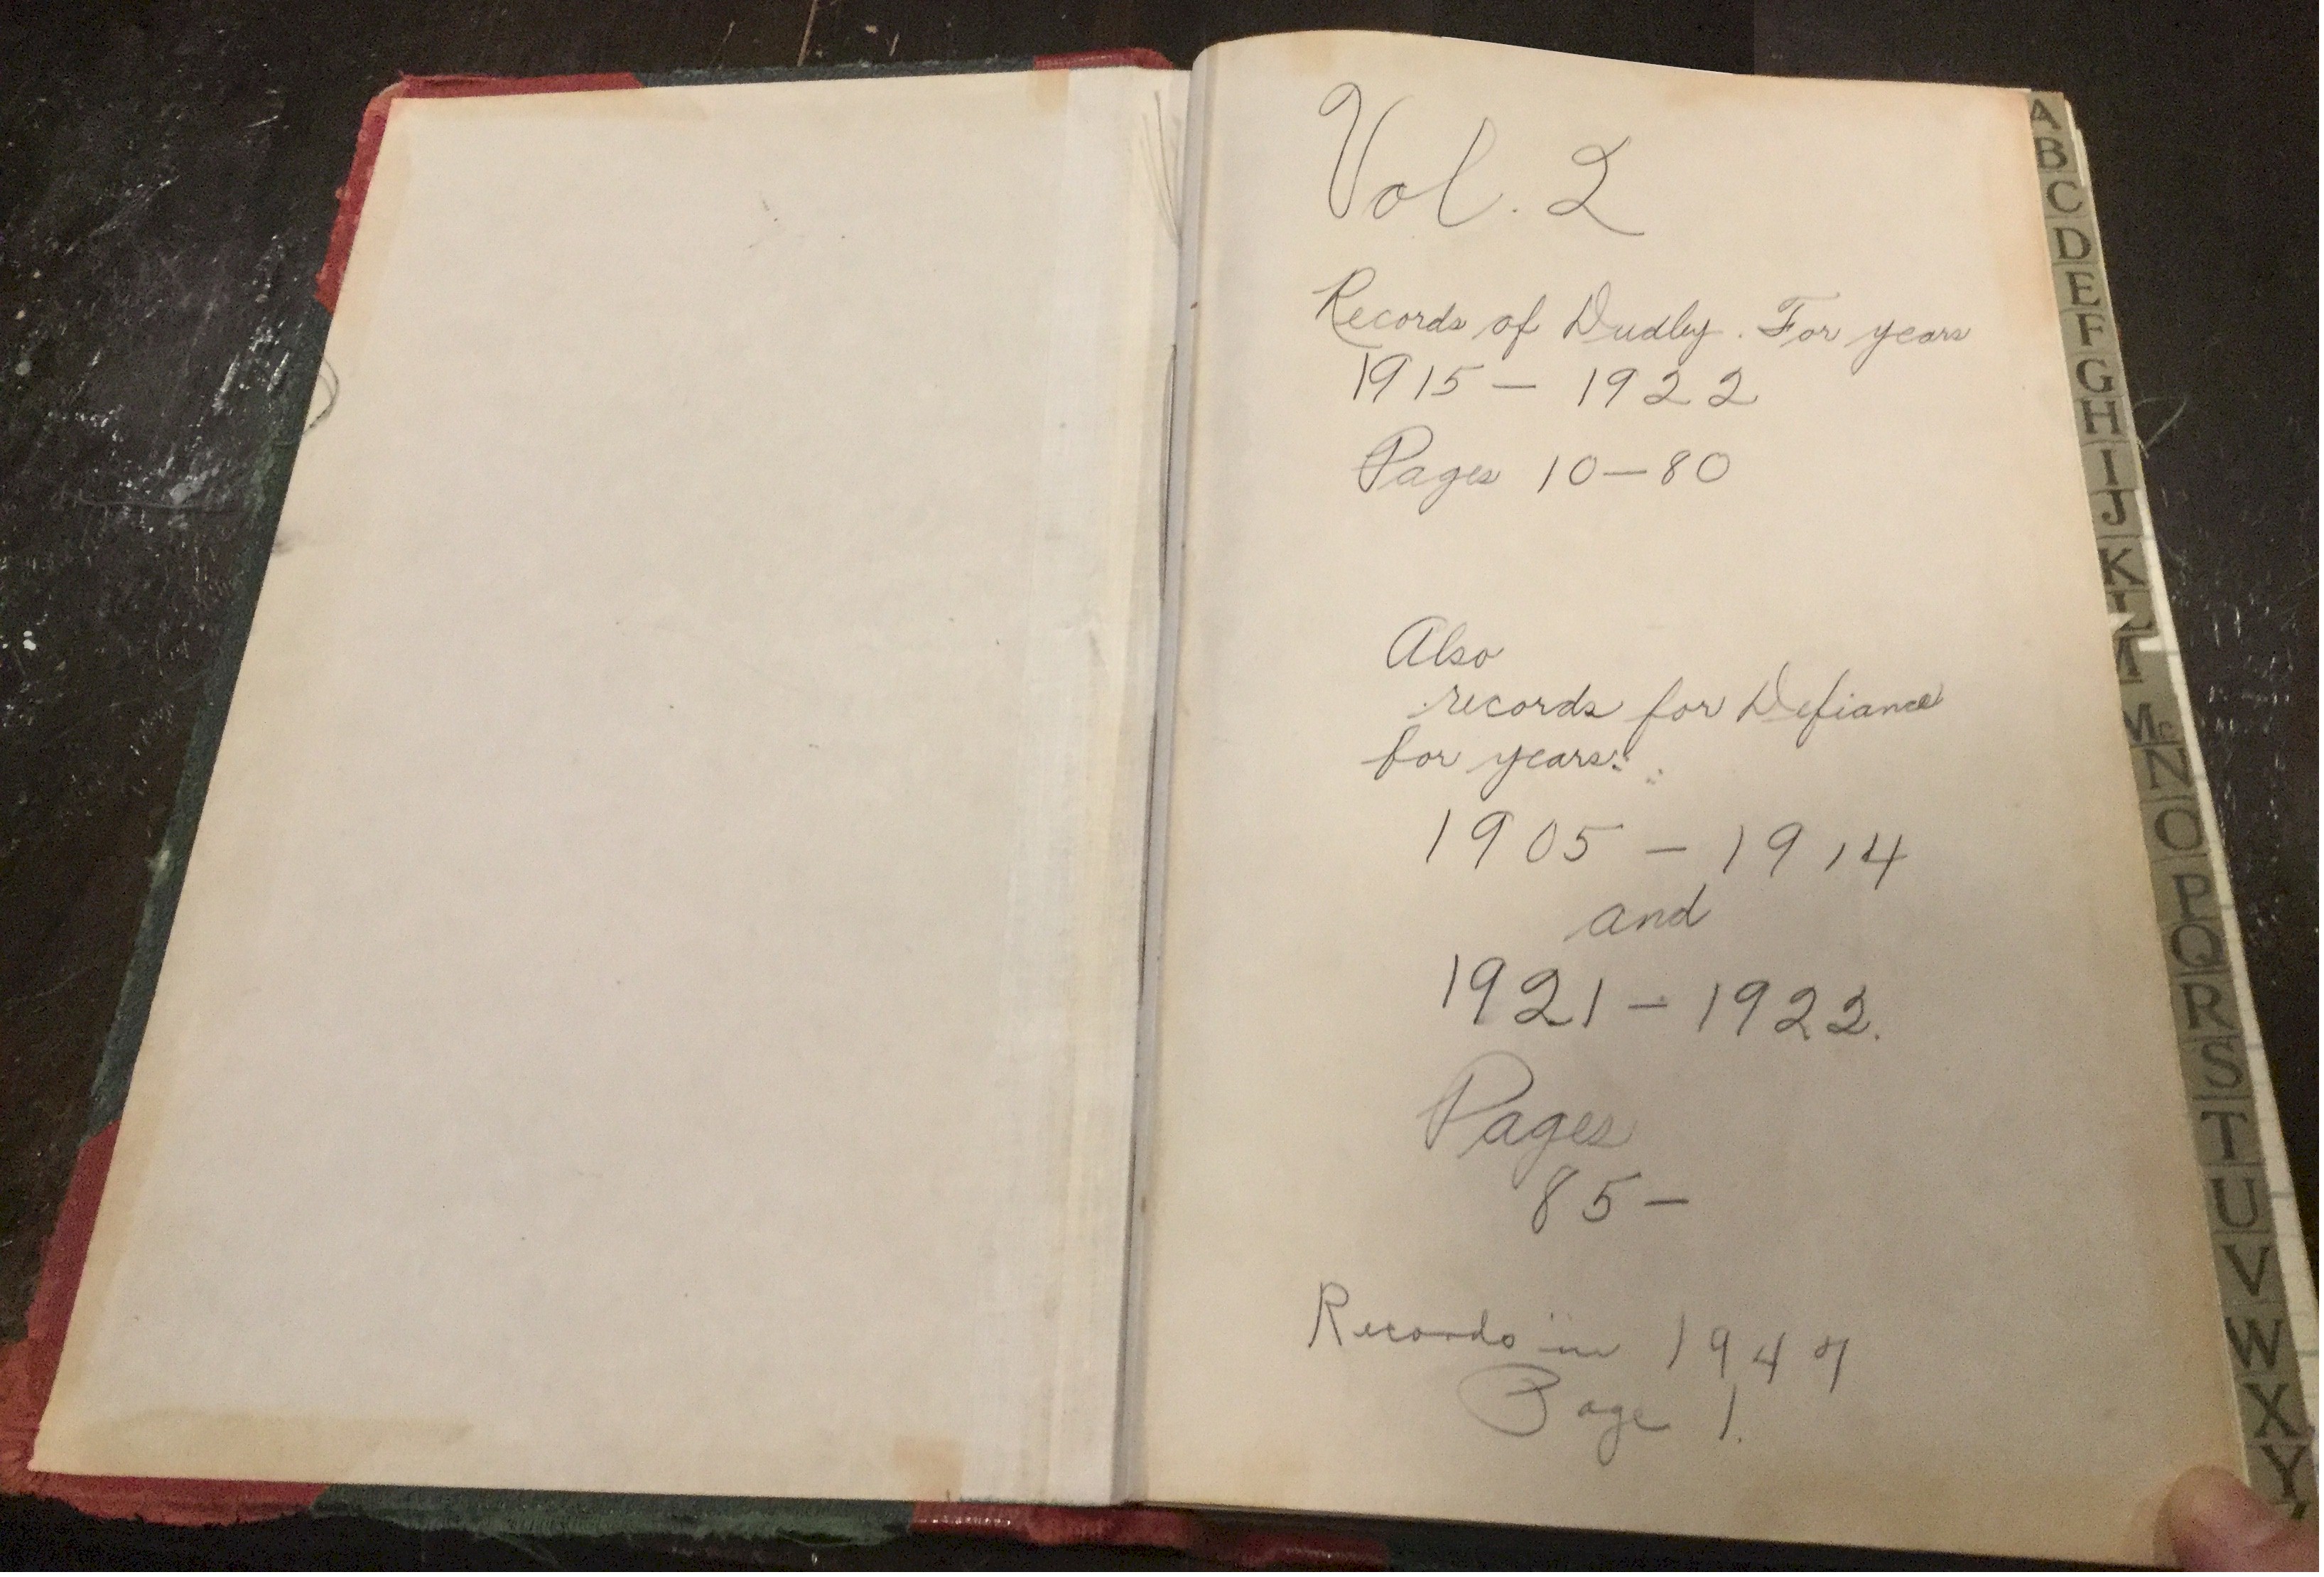 Vol. 2
Records of Dudley. For years
1915 - 1922
Pages 10-80
Also
records for Defiance
for years:
1905 - 1914
and
1921 - 1922.
Pages
85-
Records in 1947
Page 1.
A
B
C
D
E
F
G
H
I
J
K
L
Mc
N
O
P
Q
R
S
T
U
V
W
X
Y